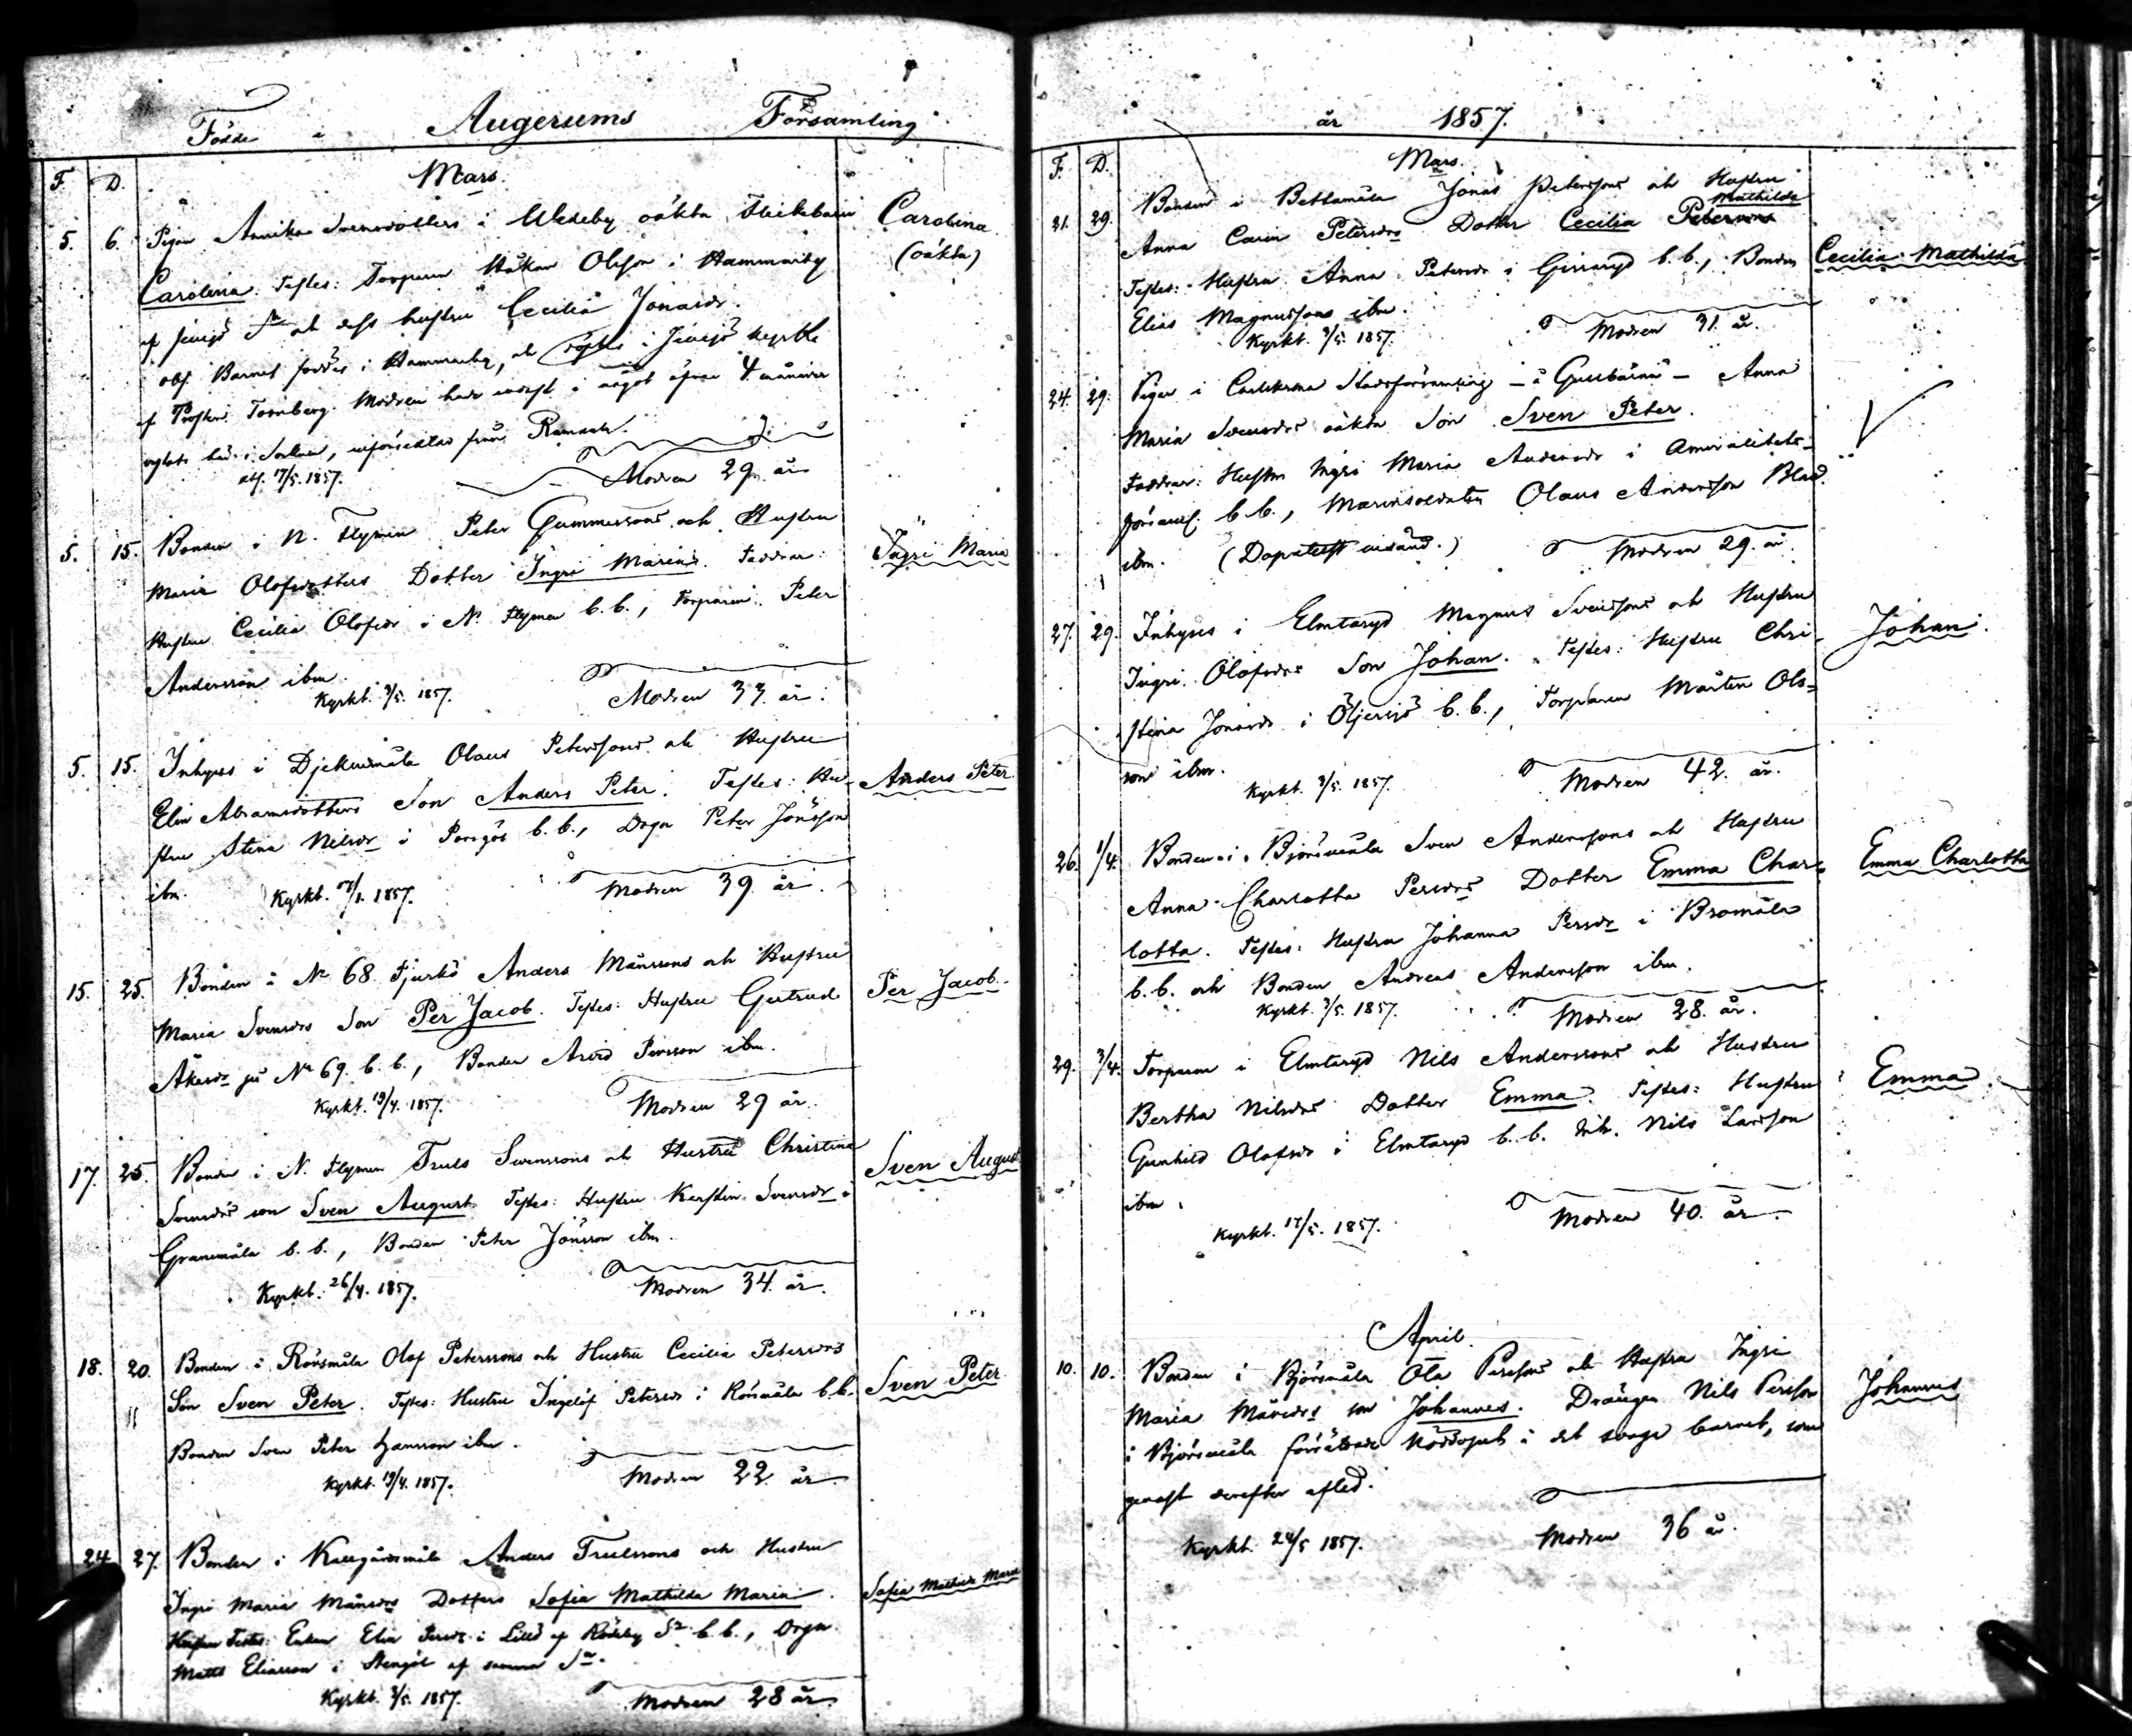 Födde i Augerums Församling
F. D. Mars.
5. 6. Pigan Annika Svensdotters i Wedeby oäkta Flickebarn Carolina
Carolina. Testes: Torparen Håkan Olsson i Hammarby (oäkta)
af och dess hustru Cecilia Jonasdr.
obs. Barnet föddes i Hammarby, och döptes i kyrka
af Tornberg. Modren har endast i något öfver 4 månader
här i Socknen, från
17/5. 1857. Modren 29 år
5. 15. Bonden i N. Flymen Peter Gummessons och Hustru Ingri Maria
Maria Olofsdotters Dotter Ingri Maria. Faddrar:
Hustru Cecilia Olofsdr i N. Flymen b.b., Torparen Peter
Andersson ibm.
Kyrkt. 3/5. 1857. Modren 33 år.
5. 15. Inhyses i Djekensmåla Olaus Peterssons och Hustru
Elin Abramsdotters Son Anders Peter. Testes: Hu- Anders Peter
stru Stina Nilsdr i b.b., Drgn Peter Jönsson
ibm. Kyrkt. 1857. Modren 39 år.
15. 25. Bonden å No 68 Tjurkö Anders Månssons och Hustru Per Jacob
Maria Svensdrs Son Per Jacob. Testes: Hustru Gertrud
Åkesdr på No 69. b.b., Bonden Arvid Persson ibm.
Kyrkt. 19/4. 1857. Modren 29 år.
17. 25. Bonden i N. Flymen Truls Svenssons och Hustru Christina Sven August
Svensdrs son Sven August. Testes: Hustru Kerstin Svensdr i
Granemåla b.b., Bonden Peter Jönsson ibm.
Kyrkt. 26/4. 1857. Modren 34 år.
18. 20. Bonden i Rörsmåla Olof Peterssons och Hustru Cecilia Petersdrs
Son Sven Peter. Testes: Hustru Ingelöf Petersdr i Rörsmåla b.b. Sven Peter
Bonden Sven Peter Hansson ibm.
Kyrkt. 19/4. 1857. Modren 22 år
24 27. Bonden i Anders Trulssons och Hustru
Ingri Maria Månsdrs Dotters Sofia Mathilda Maria. Sofia Mathilda Maria
Testes: Enkan Elin Persdr i af Rödeby Sn b.b., Drgn
Matts Eliasson i Stengöl af samma Sn.
Kyrkt. 3/5. 1857. Modren 28 år.
år 1857.
F. D. Mars.
21. 29. Bonden i Bettamåla Jonas Peterssons och Hustru
Mathilda
Anna Carin Petersdrs Dotter Cecilia
Testes: Hustru Anna Petersdr i b.b., Bonden Cecilia Mathilda
Elias Magnussons ibm.
Kyrkt. 3/5. 1857. Modren 31. år.
24. 29. Pigan i Carlskrona Stadsförsamling - å - Anna
Maria Svensdrs oäkta Son Sven Peter.
Faddrar: Hustru Ingri Maria Andersdr i Amiralitets-
förs. b.b., Marinsoldaten Olaus Andersson Blad
ibm. Modren 29. år.
27. 29. Inhyses i Elmtaryd Magnus Svenssons och Hustru Johan.
Ingri Olofsdrs Son Johan. Testes: Hustru Chri-
stina Jonasdr i Öljersjö b.b., Torparen Mårten Ols-
son ibm.
Kyrkt. 3/5. 1857. Modren 42. år.
26. 1/4. Bonden i Björsmåla Sven Anderssons och Hustru
Anna Charlotta Persdrs Dotter Emma Char- Emma Charlotta
lotta. Testes: Hustru Johanna Persdr i Bromåla
b.b. och Bonden Andreas Andersson ibm.
Kyrkt. 3/5. 1857. Modren 28. år.
29. 3/4. Torparen i Elmtaryd Nils Anderssons och Hustru
Bertha Nilsdrs Dotter Emma. Testes: Hustru Emma
Gunhild Olofsdr i Elmtaryd b.b. Inh. Nils Larsson
ibm.
Kyrkt. 17/5. 1857. Modren 40. år.
April.
10. 10. Bonden i Björsmåla Ola Perssons och Hustru Ingri
Maria Månsdrs son Johannes. Drängen Nils Persson Johannes
i Björsmåla förrättade Nöddopet å det svaga barnet, som
genast derefter afled.
Kyrkt. 24/5 1857. Modren 36 år.